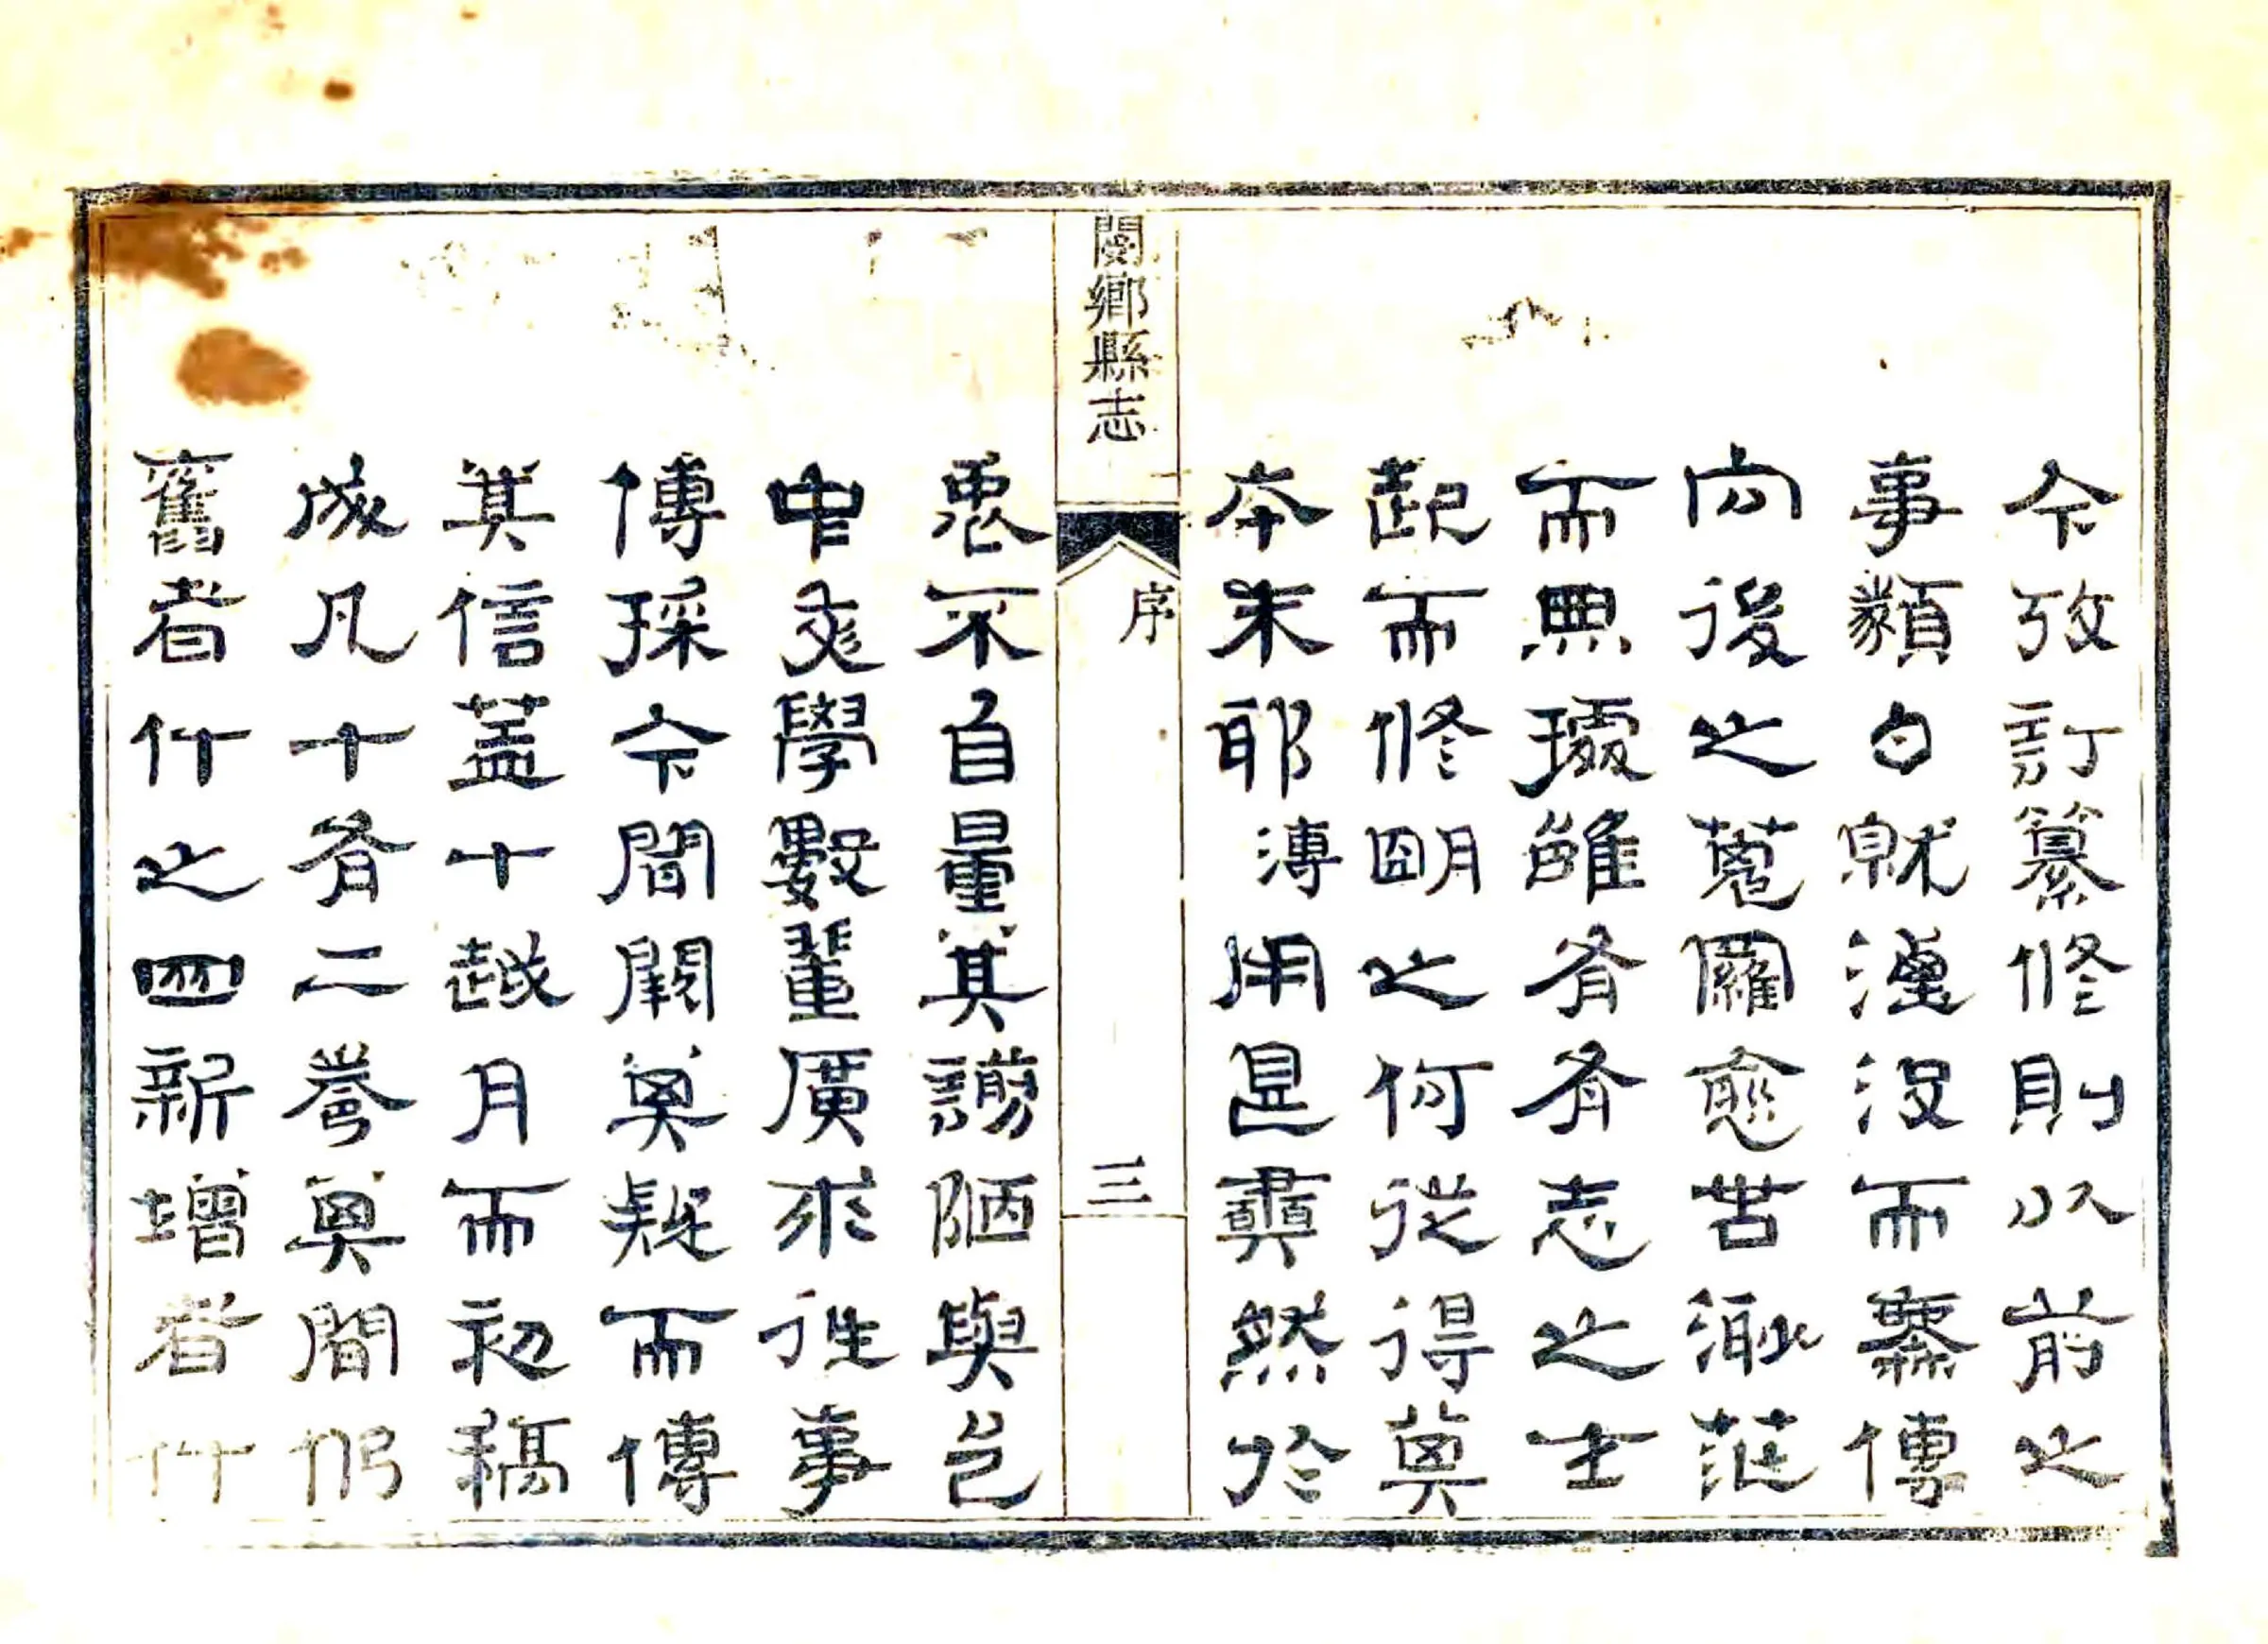 今攷訂纂修則以前之
事類日就湮没而無傳
向後之蒐羅愈苦渺茫
而典據雖有有志之士
起而修明之何從得其
本末耶溥用是然於
閿鄉縣志
序
三
不自量其謭陋與邑
中文學數輩廣求往事
博採今聞闕其疑而傳
其信蓋十越月而初稿
成凡十有二卷其間仍
舊者什之四新增者什